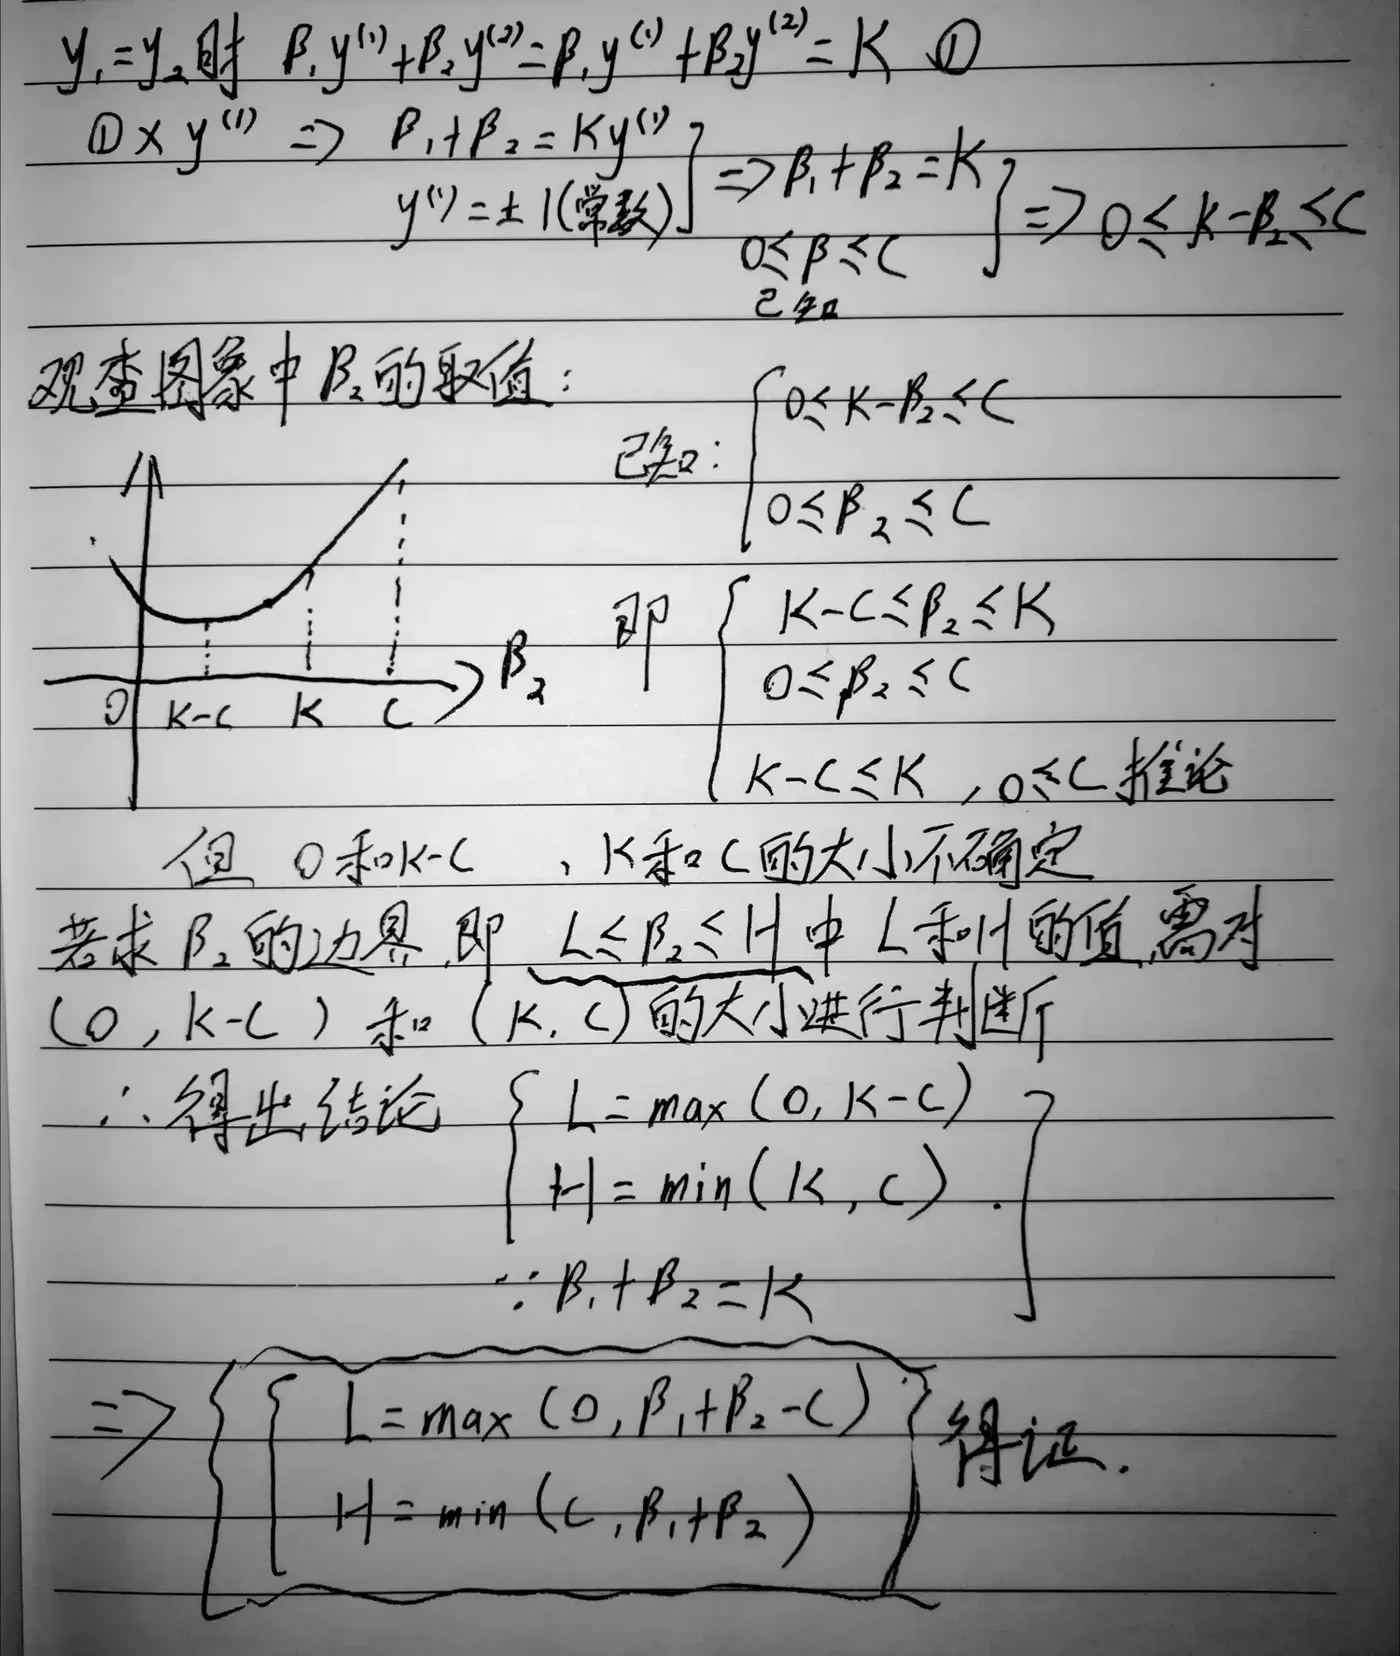 y₁=y₂时 β₁y⁽¹⁾+β₂y⁽²⁾=β₁y⁽¹⁾+β₂y⁽²⁾=K ①
①×y⁽¹⁾ => β₁+β₂=Ky⁽¹⁾
y⁽¹⁾=±1(常数)
=> β₁+β₂=K
0≤β≤C
已知
=> 0≤K-β₂≤C
观查图象中β₂的取值:
已知:
0≤K-β₂≤C
0≤β₂≤C
β₂
0 K-C K C
即
K-C≤β₂≤K
0≤β₂≤C
K-C≤K , 0≤C 推论
但 0和K-C , K和C的大小不确定
若求β₂的边界,即 L≤β₂≤H中 L和H的值,需对
(0, K-C) 和 (K, C)的大小进行判断
∴得出结论
L=max(0, K-C)
H=min(K, C).
∵β₁+β₂=K
=>
L=max(0, β₁+β₂-C)
H=min(C, β₁+β₂)
得证.